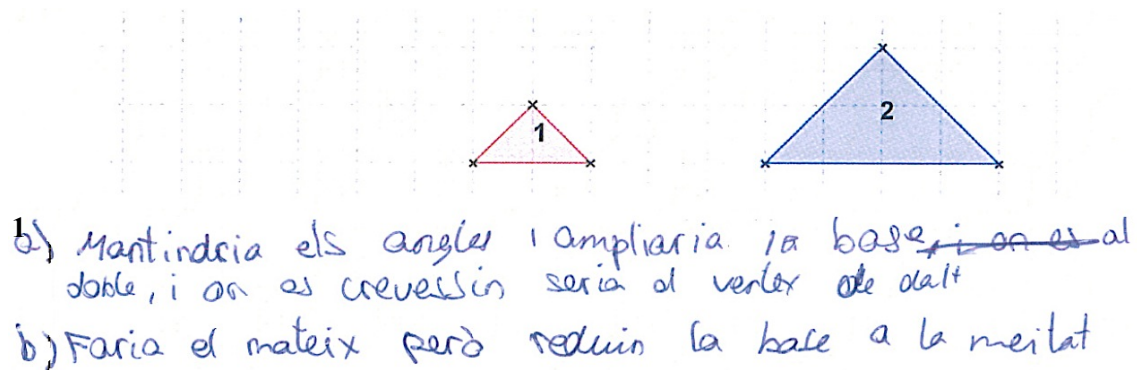 1
2
1
a) Mantindria els angles i ampliaria la base, i on es al
doble, i on es crevessin seria el vertex de dalt
b) Faria el mateix però reduin la base a la meitat